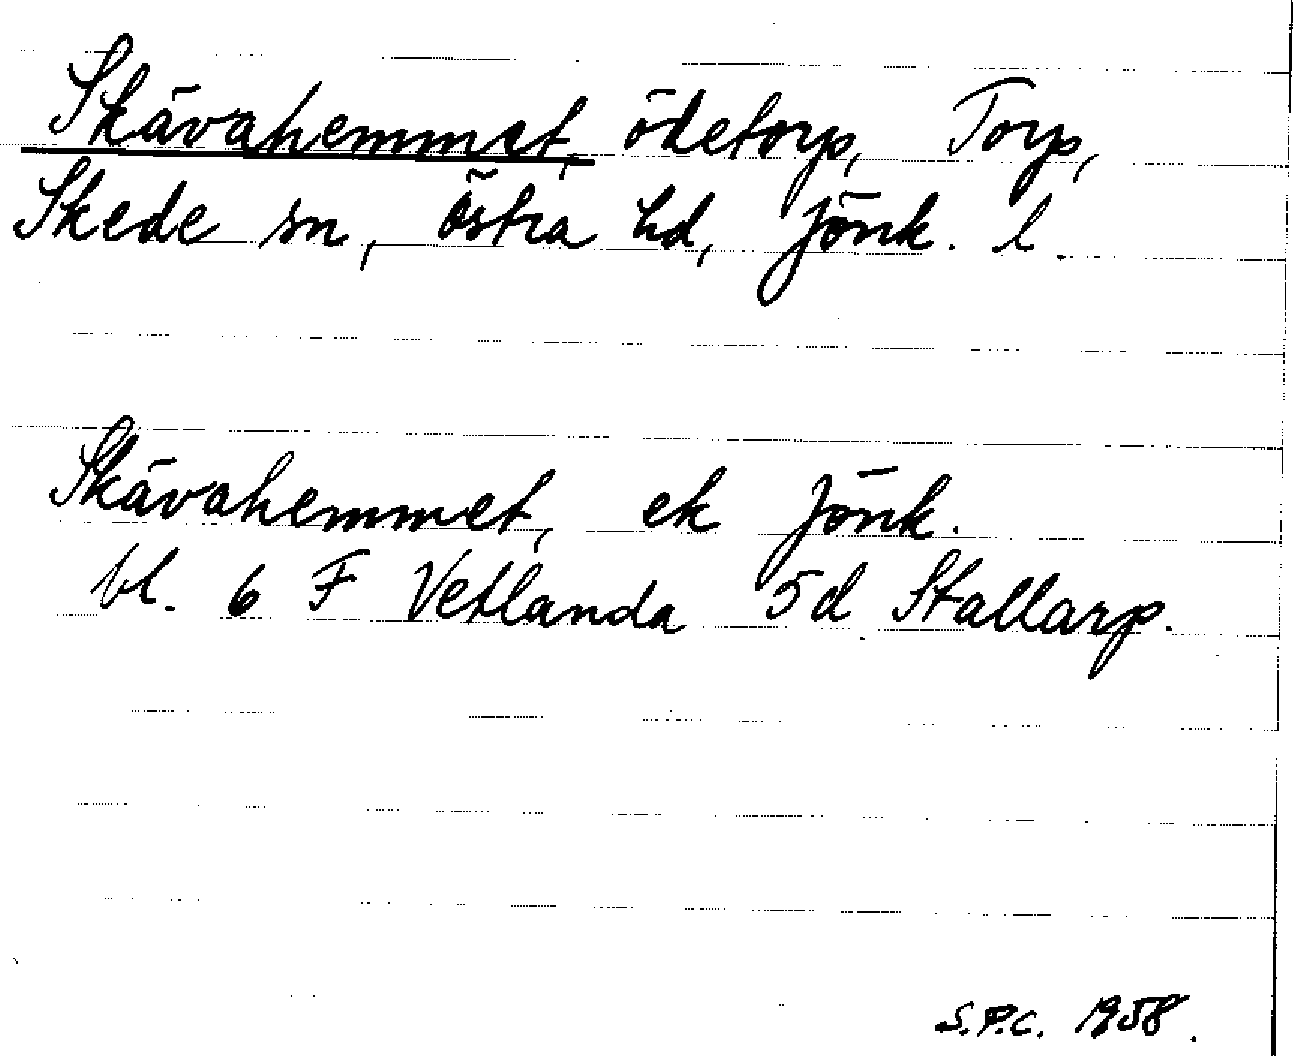 Skävahemmet, ödetorp, Torp,
Skede sn, Östra hd, Jönk. l.
Skävahemmet, ek Jönk.
bl. 6 F Vetlanda 5d Stallarp.
S.P.C. 1958.